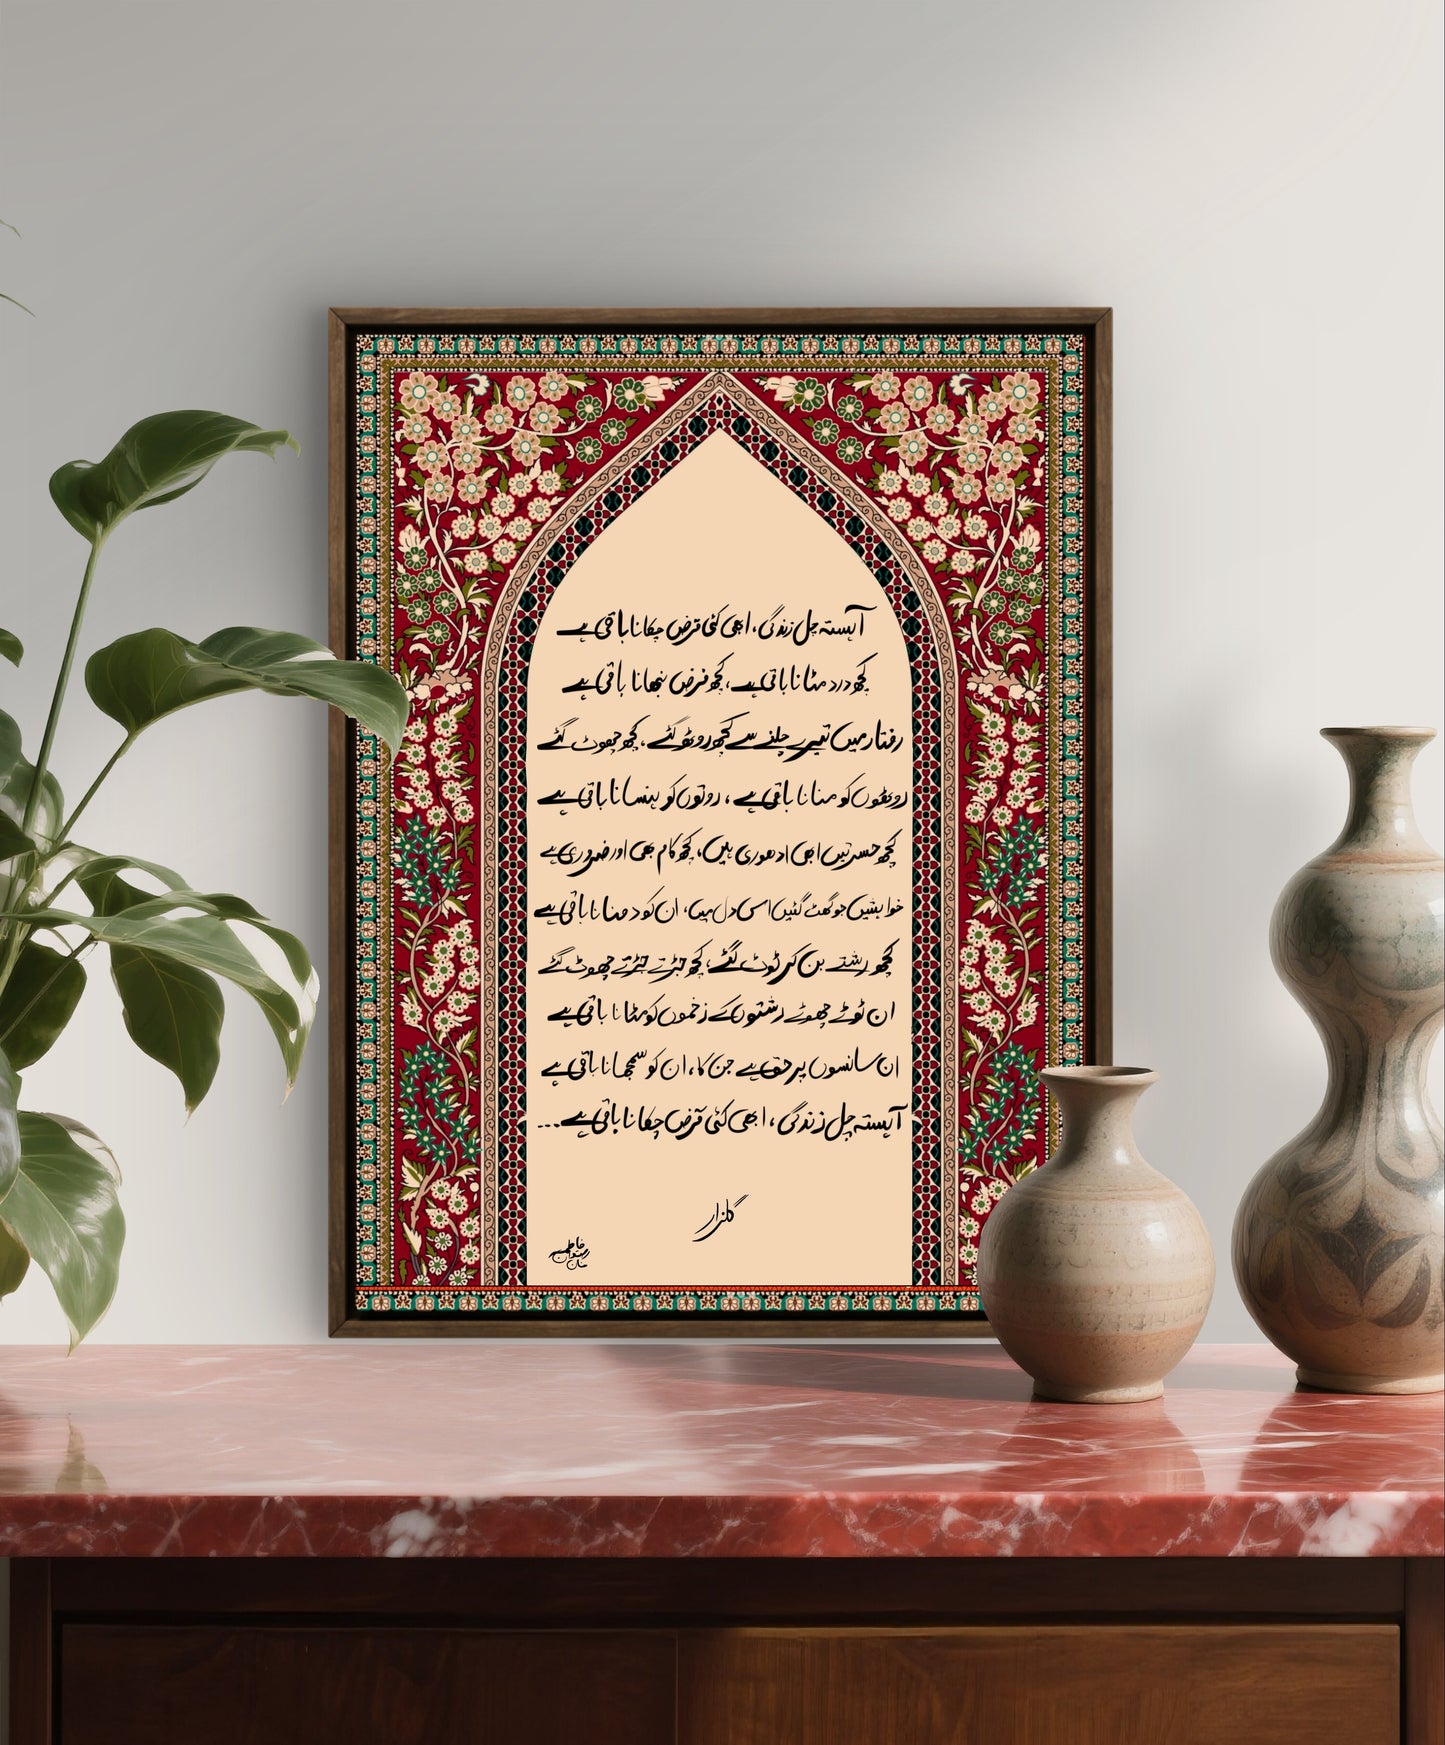 آہستہ چل زندگی، ابھی کئی قرض چکانا باقی ہے
کچھ درد مٹانا باقی ہے، کچھ فرض نبھانا باقی ہے
رفتار میں تیرے چلنے سے کچھ روٹھ گئے، کچھ چھوٹ گئے
روٹھوں کو منانا باقی ہے، روتوں کو ہنسانا باقی ہے
کچھ حسرتیں ابھی ادھوری ہیں، کچھ کام بھی اور ضروری ہے
خواہشیں جو گھٹ گئیں اس دل میں، ان کو دفنانا باقی ہے
کچھ رشتے بن کر ٹوٹ گئے، کچھ جڑتے جڑتے چھوٹ گئے
ان ٹوٹے چھوٹے رشتوں کے زخموں کو مٹانا باقی ہے
ان سانسوں پر حق ہے جن کا، ان کو سمجھانا باقی ہے
آہستہ چل زندگی، ابھی کئی قرض چکانا باقی ہے...
گلزار
فاطمہ